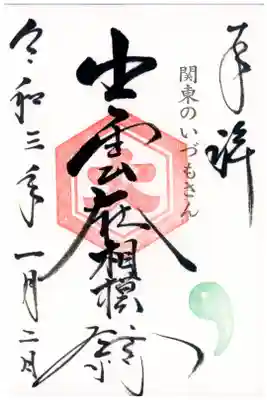 奉拝
関東のいづもさん
出雲大社相模分祠
令和三年一月二日